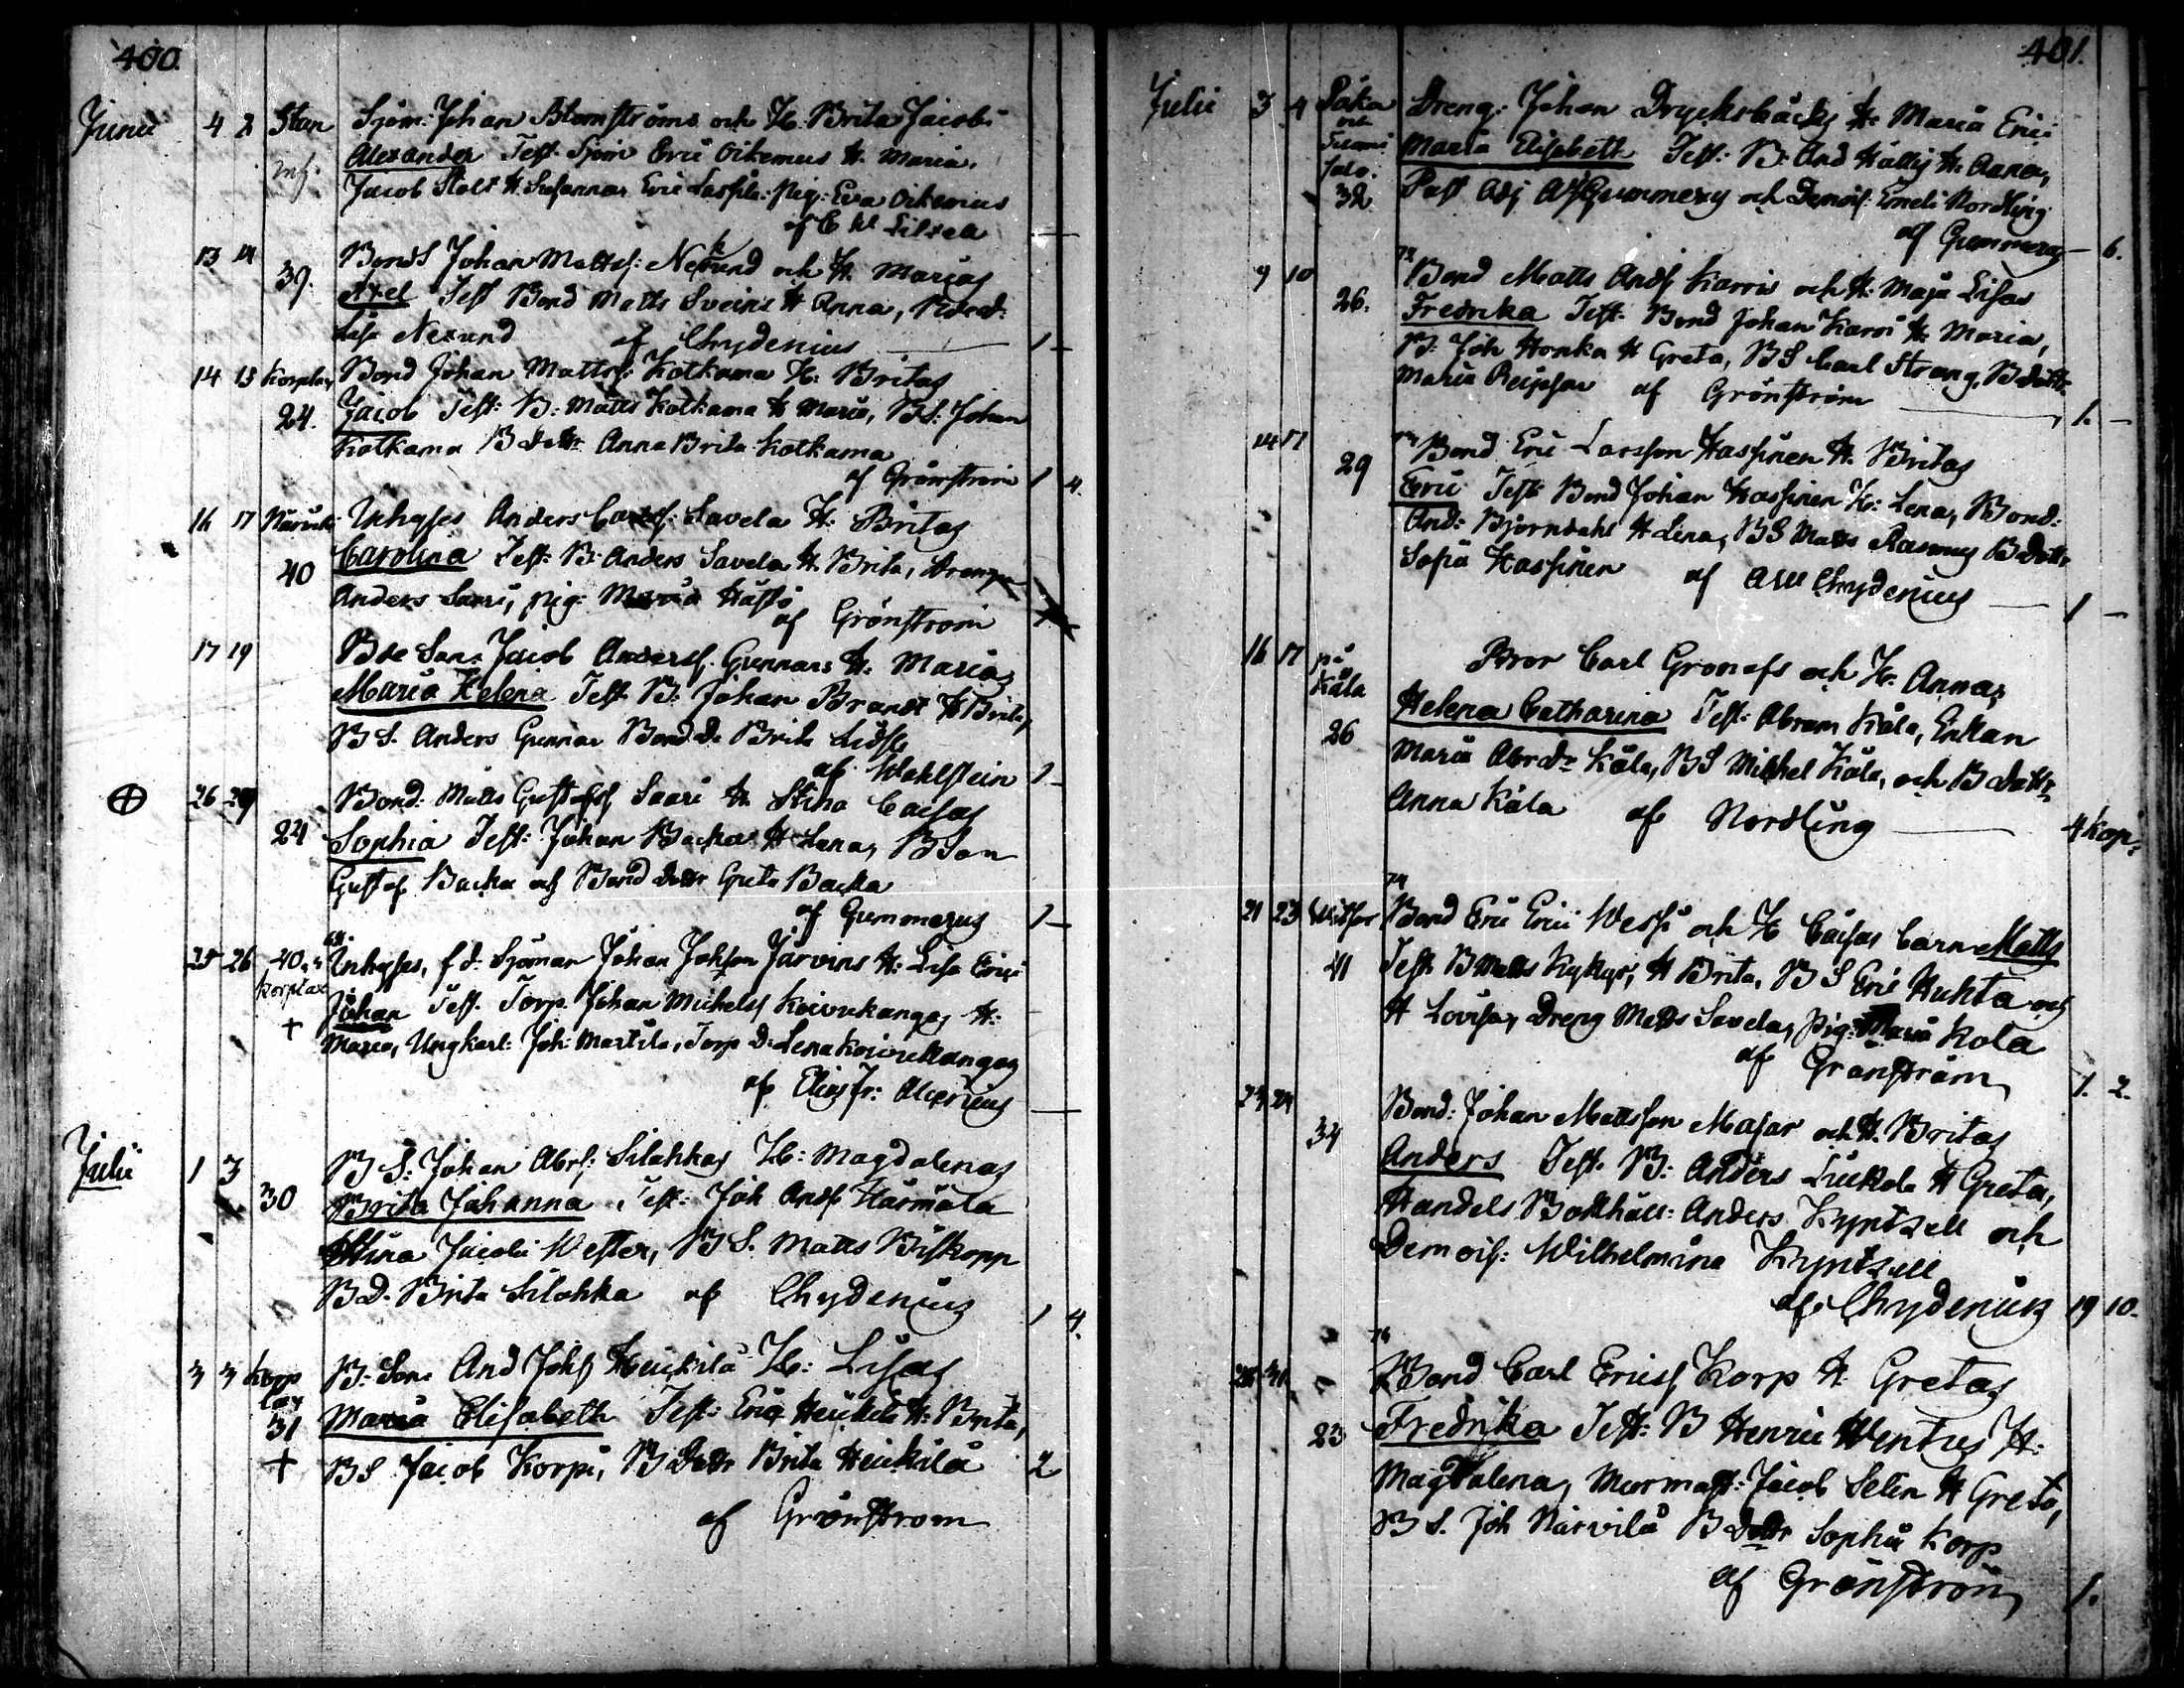 400.
Junii 4 2 Sjöm: Johan Blomströms och H: Brita Jacobs
Alexander Test. Sjöm Eric Oikemus H. Maria,
Jacob Stolt H Susanna, Eric Lassila: Pig: Eva Oikemus
af C
13 14 39. BondS Johan Matts: Nexund och H. Marias
Axel Test Bond Matts Sveins H Anna, Bond
Lisa Nexund af Chydenius 1 –
14 15 Korplax Bond Johan Mattss: Kotkama H: Britas
24. Jacob Test: B: Matts Kotkama H Maria, BS. Johan
Kotkama B dottr Anna Brita Kotkama
af Grönström 1 4.
16 17 Inhyses Anders Savela H: Britas
40 Carolina Test: B: Anders Savela H. Brita, Drengen
Anders Saari, pig: Maria
af Grönström
17 19 Bde Son: Jacob Anderss. Gunnars H: Marias
Maria Helena Test B: Johan Brandt H Brita,
BS. Anders Gunnar Bond D. Brita
af Wahlstein 1 –
26 29 Bond: Matts Gustafss Saari H. Stina Caisas
24 Sophia Test: Johan Backa H Lena, B Son
Gustaf Backa och Bond dottr Greta Backa
af Gummerus 1 –
25 26 40. Inhyses, f d: Sjöman Johan Johsson Järvins H: Lisa Erics
Korplax Johan Test. Torp. Johan Michelss Koivukangas H:
+ Maria, Ungkarl: Joh: Martila, Torp D: Lena Koivukangas
af Elias Fr: Alcenius –
Julii 1 3 BS: Johan Abrs: Silahkas H: Magdalenas
30 Brita Johanna Test: Joh Ands Härmälä
Stina Jacobi Wester, BS. Matts Biskopp
BD. Brita Silahka af Chydenius 1 4.
3 3 Korp B: Son: And Johs Heickilä H: Lisas
lax
31 Maria Elisabeth Test: Eric Heickilä H: Brita,
+ BS Jacob Korpi, B Dottr Brita Heickilä 2
af Grönström
401.
Julii 3 4 Dreng: Johan Drycksbäcks H: Maria Erici
Maria Elisabeth Test: B: And Källig H: Anna,
32 Past Adj Gummerus och Demois: Emeli Nordling
af Gummerus – 6.
9 10 Bond Matts Ands Karris och H: Maja Lisas
26. Fredrika Test. Bond Johan Karri H: Maria,
B: Joh Honka H Greta, BS Carl Strang, B dottr
Maria af Grönström 1. –
14 17 Bond Eric Larsson Hassinen H. Britas
29 Eric Test: Bond Johan Hassinen H: Lena, Bond:
And: Björndahl H Lena, BS Matts Rasmus B Dottr
Sofia Hassinen af AW Chydenius – 1 –
16 17 på Bror Carl Gronofs och H. Annas
Kåla Helena Catharina Test: Abram Kåla, Enkan
26 Maria Abr dr Kåla, BS Michel Kåla, och B Dottr
Anna Kåla af Nordling – 4 Kop:
21 23 Bond Eric Erici Wessi och H Caisas barn Matts
41 Test B Matts Kykyri, H Brita, BS Eric Huhta och
H Lovisa, Dreng Matts Savela, pig: Maria Kola
af Grönström 1. 2.
23 24 Bond: Johan Mattsson Masar och H. Britas
34 Anders Test. B: Anders Luckola H Greta,
Handels Bokhåll: Anders Kyntzell och
Demois: Wilhelmina Kyntzell
af Chydenius 19 10.
Bond Carl Ericss Korp H: Gretas
23 Fredrika Test: B Henric Wentus H:
Magdalena, Murmast: Jacob Selin H Greta,
BS. Joh Närvilä B Dottr Sophia Korp
af Grönström 1.